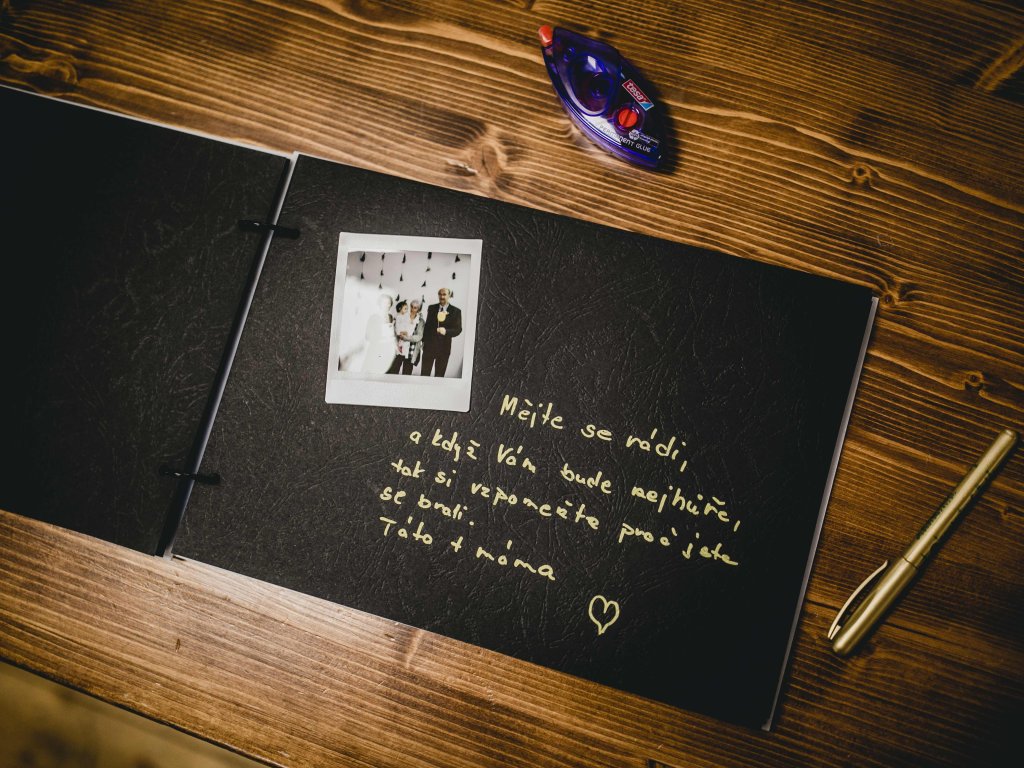 tesa
PERMANENT GLUE
Mějte se rádi,
a když Vám bude nejhůře,
tak si vzpomeňte proč jste
se brali.
Táto + máma